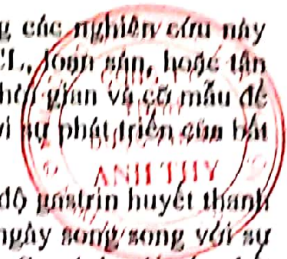 g các nghiên cứu này
CL, loạn sản, hoặc tân
thời gian và cỡ mẫu để
với sự phát triển của bất
ANH THY
độ gastrin huyết thanh
ngày song song với sự